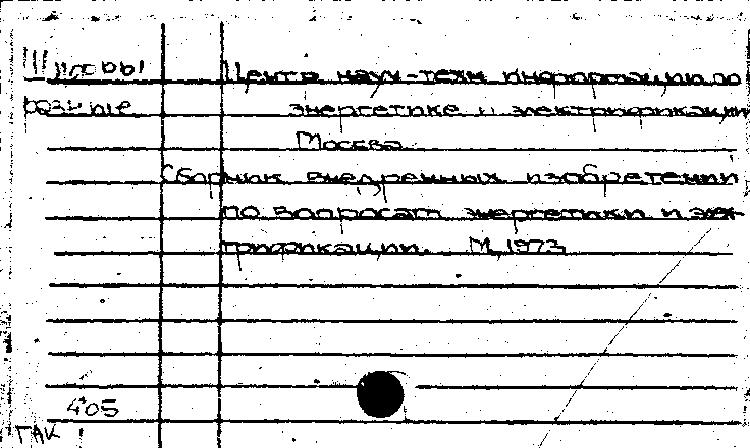 Шифры Центр науч-техн информации по
разные энергетике и электрификации
Москва
Сборник внедренных изобретений
по вопросам энергетики и элек-
трификации. М, 1973
405
ГАК